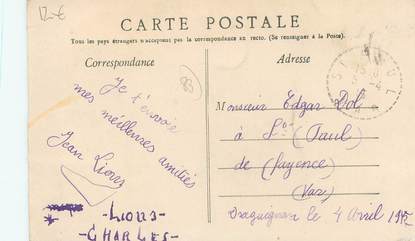 12€
CARTE POSTALE
Tous les pays étrangers n'acceptent pas la correspondance au recto. (Se renseigner à la Poste).
Correspondance
Adresse
83
Je t'envoie
mes meilleures amitiés
Jean Lions
Lions
CHARLES
Monsieur Edgar Dol
à St Paul
de fayence
(Var)
Draguignan le 4 Avril